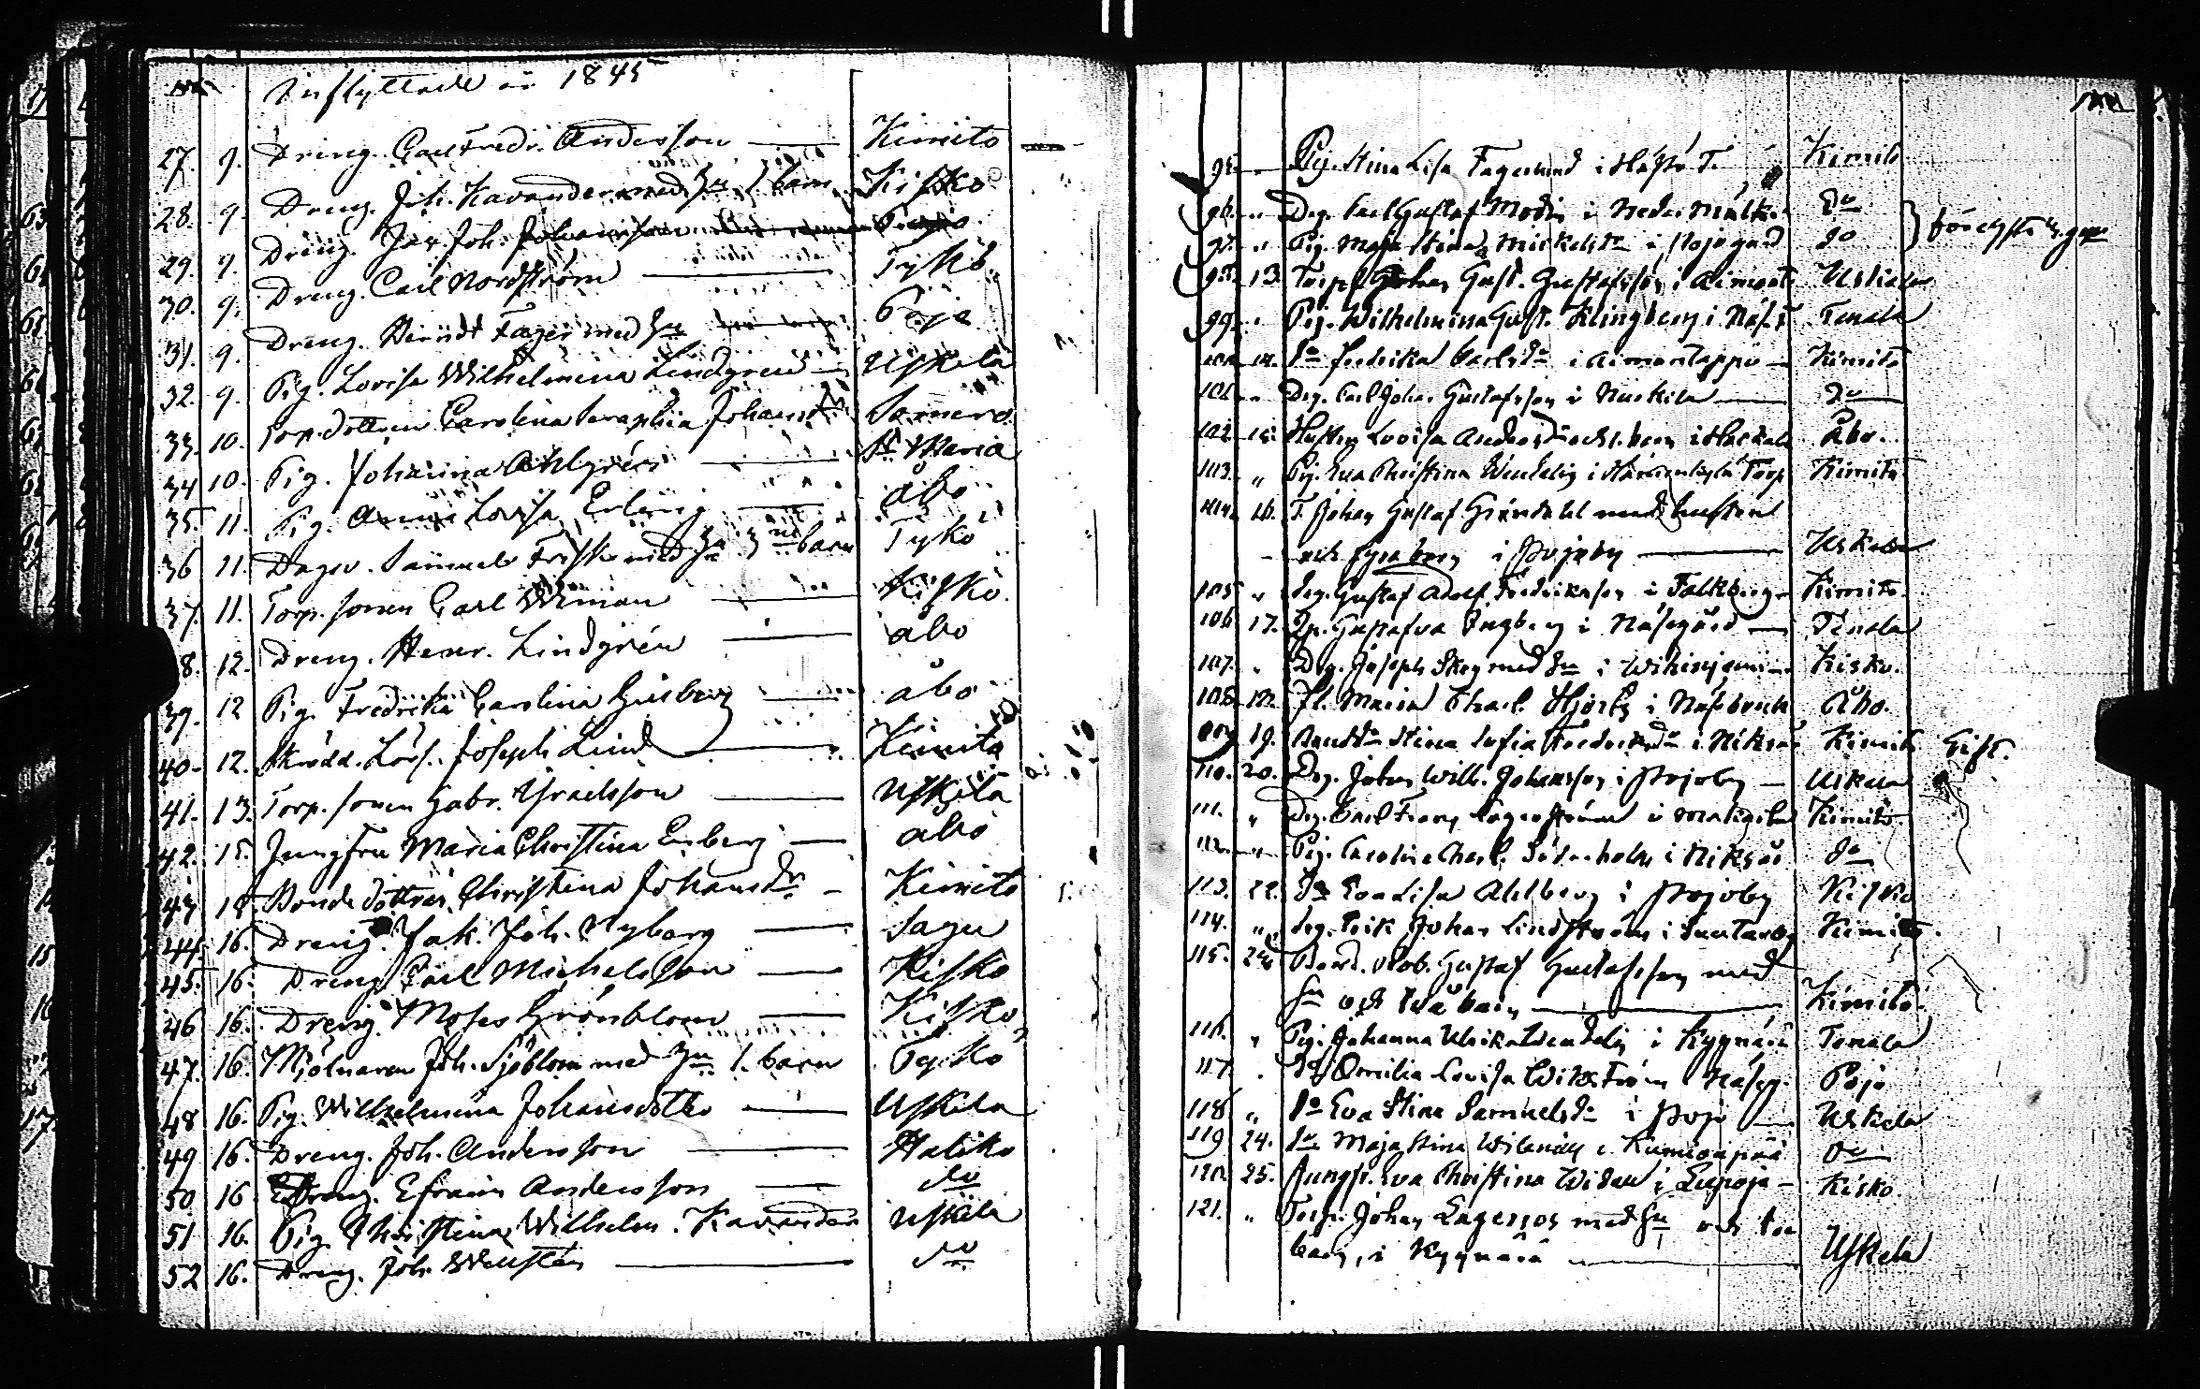 Inflyttade år 1845
27. 9. Dreng. Carl Fredr. Andersson — Kimito
28. 9. Dreng. Joh. Kavander med Hu 2 barn Kisko
29. 9. Dreng. Jak. Joh. Johansson
30. 9. Dreng. Carl Nordström — Tykö
31. 9. Dreng. Berndt Fager med Hu Pojo
32. 9. Pig. Lovisa Wilhelmina Lindgren — Uskela
33. 10. Torp. dottren Carolina Seraphia Johansdr Somero
34 10. Pig. Johanna Ahlgrén — St Maria
35. 11. Pig. Anna Lovisa Erling — åbo
36 11. Dagsv. Samuel Frisk med Hu 3ne barn Tykö
37. 11. Torp. sonen Carl Wiman — Kisko.
38. 12. Dreng. Henr. Lindgrén — åbo
39. 12 Pig. Fredrika Carolina — åbo
40. 12. Skrädd. Lärl. Joseph Lind — Kimito
41. 13. Torp. sonen Gabr. Israelsson — Uskela
42. 15. Jungfru Maria Christina Enberg — åbo
43 18 Bonde dottren Christina Johansdr — Kimito
44. 16. Dreng. Jak. Joh. Nyberg — Sagu
45. 16. Dreng Carl Michelsson — Kisko
46 16. Dreng. Moses Grönblom — Kisko
47. 16. Mjölnaren Joh. Sjöblom med Hu 1. barn Tykö
48 16. Pig. Wilhelmina Johansdotter — Uskela
49 16. Dreng. Joh. Andersson — Haliko
50 16 Dreng. Efraim Andersson — do
51 16. Pig Christina Wilhelm. Kavander Uskela
52 16. Dreng. Joh. Wellsten — do
95. Pig. Stina Lisa Fagerlund i Kimito
96. " Drg. Carl Gustaf Modin i Nedre do
97. " Pig. Maja Stina Mickelsdr i Pojogård do
98. 13. Torp. Johan Gust. Gustafsson i Uskela
99. " Pig. Wilhelmina Gust. Klingberg i Tenala
100. 14. do Fredrika Carlsdr i — Kimito
101. " Drg. Carl Johan Gustafsson i — do
102. 15. Hustru Lovisa Andersdr och 1. barn i Åbo.
103. " Pig. Eva Christina Wendelin i Torp Kimito
104. 16. T. Johan Gustaf Gröndahl med hustru
och fyra barn i Pojoby — Uskela
105 " Drg. Gustaf Adolf Fredriksson i Falkberg Kimito.
106 17. Gustafva Engberg i Näsegård — Tenala
107. " Drg. Joseph Skog med Hu i — Kisko.
108. 18. Fl. Maria Charl. i Näsebruk Åbo.
109 19. Bondedr Stina Sofia Fredriksdr i Kimito Gift.
110. 20. Drg. Johan Wilh. Johansson i Pojoby — Uskela
111. " Drg. Carl Franz Lagerström i Kimito
112. " Pig. Carolina Charl. Söderholm i do
113. 22. do Eva Lisa Ahlberg i Pojoby Kisko
114. " Drg. Erik Johan Lindström i Kimito.
115. 23. Rob. Gustaf Gustafsson med
Hu och två barn — Kimito.
116. " Pig. Johanna Ulrika Wendelin i Kyynärä Tenala
117 . do Emilia Lovisa Wikström i Pojo
118 " do Eva Stina Samuelsdr i Pojo — Uskela
119 24. do Maja Stina i do
120. 25. Jungfr. Eva Christina Widen i — Kisko
121. " Torp. Johan Lagerroos med Hu och tre
barn, i Kyynärä — Uskela